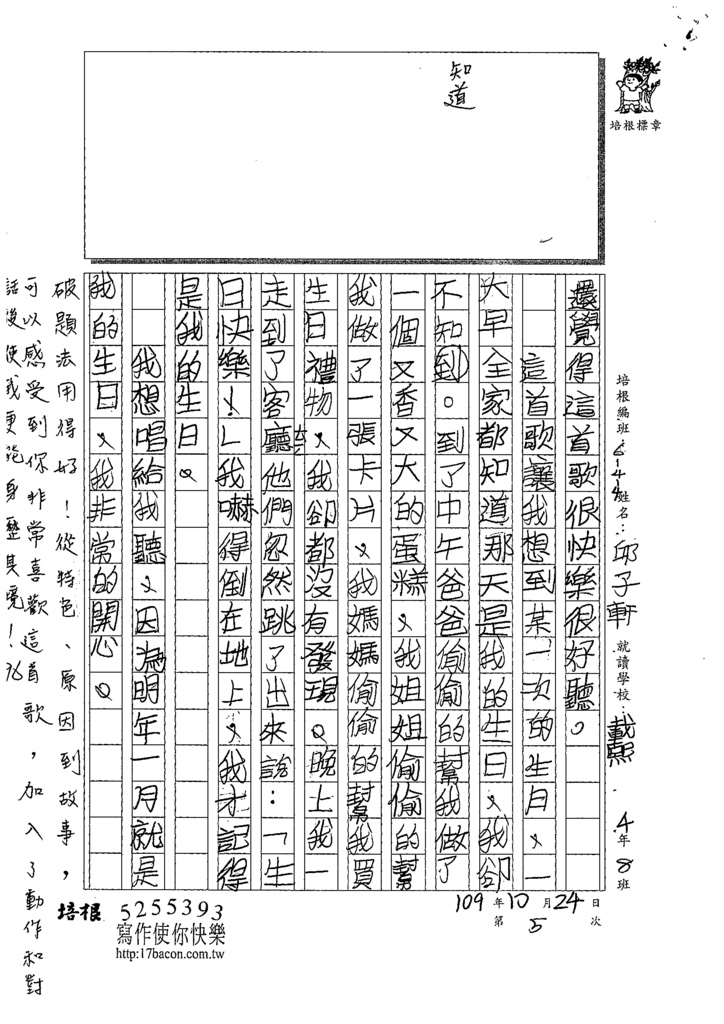 知道
培根標章
培根編班：6144 姓名：邱子軒 就讀學校：載熙 4年8班
109年10月24日
第5次
還覺得這首歌很快樂很好聽。
這首歌讓我想到某一次的生日，一
大早全家都知道那天是我的生日，我卻
不知到。到了中午爸爸偷偷的幫我做了
一個又香又大的蛋糕，我姐姐偷偷的幫
我做了一張卡片，我媽媽偷偷的幫我買
生日禮物，我卻都沒有發現。晚上我一
走到了客廳，他們忽然跳了出來說：「生
日快樂！」我嚇得倒在地上，我才記得
是我的生日。
我想唱給我聽，因為明年一月就是
我的生日，我非常的開心。
破題法用得好！從特色、原因到故事，
可以感受到你非常喜歡這首歌，加入了動作和對
話後使我更能身歷其境！
培根 5255393
寫作使你快樂
http:17bacon.com.tw